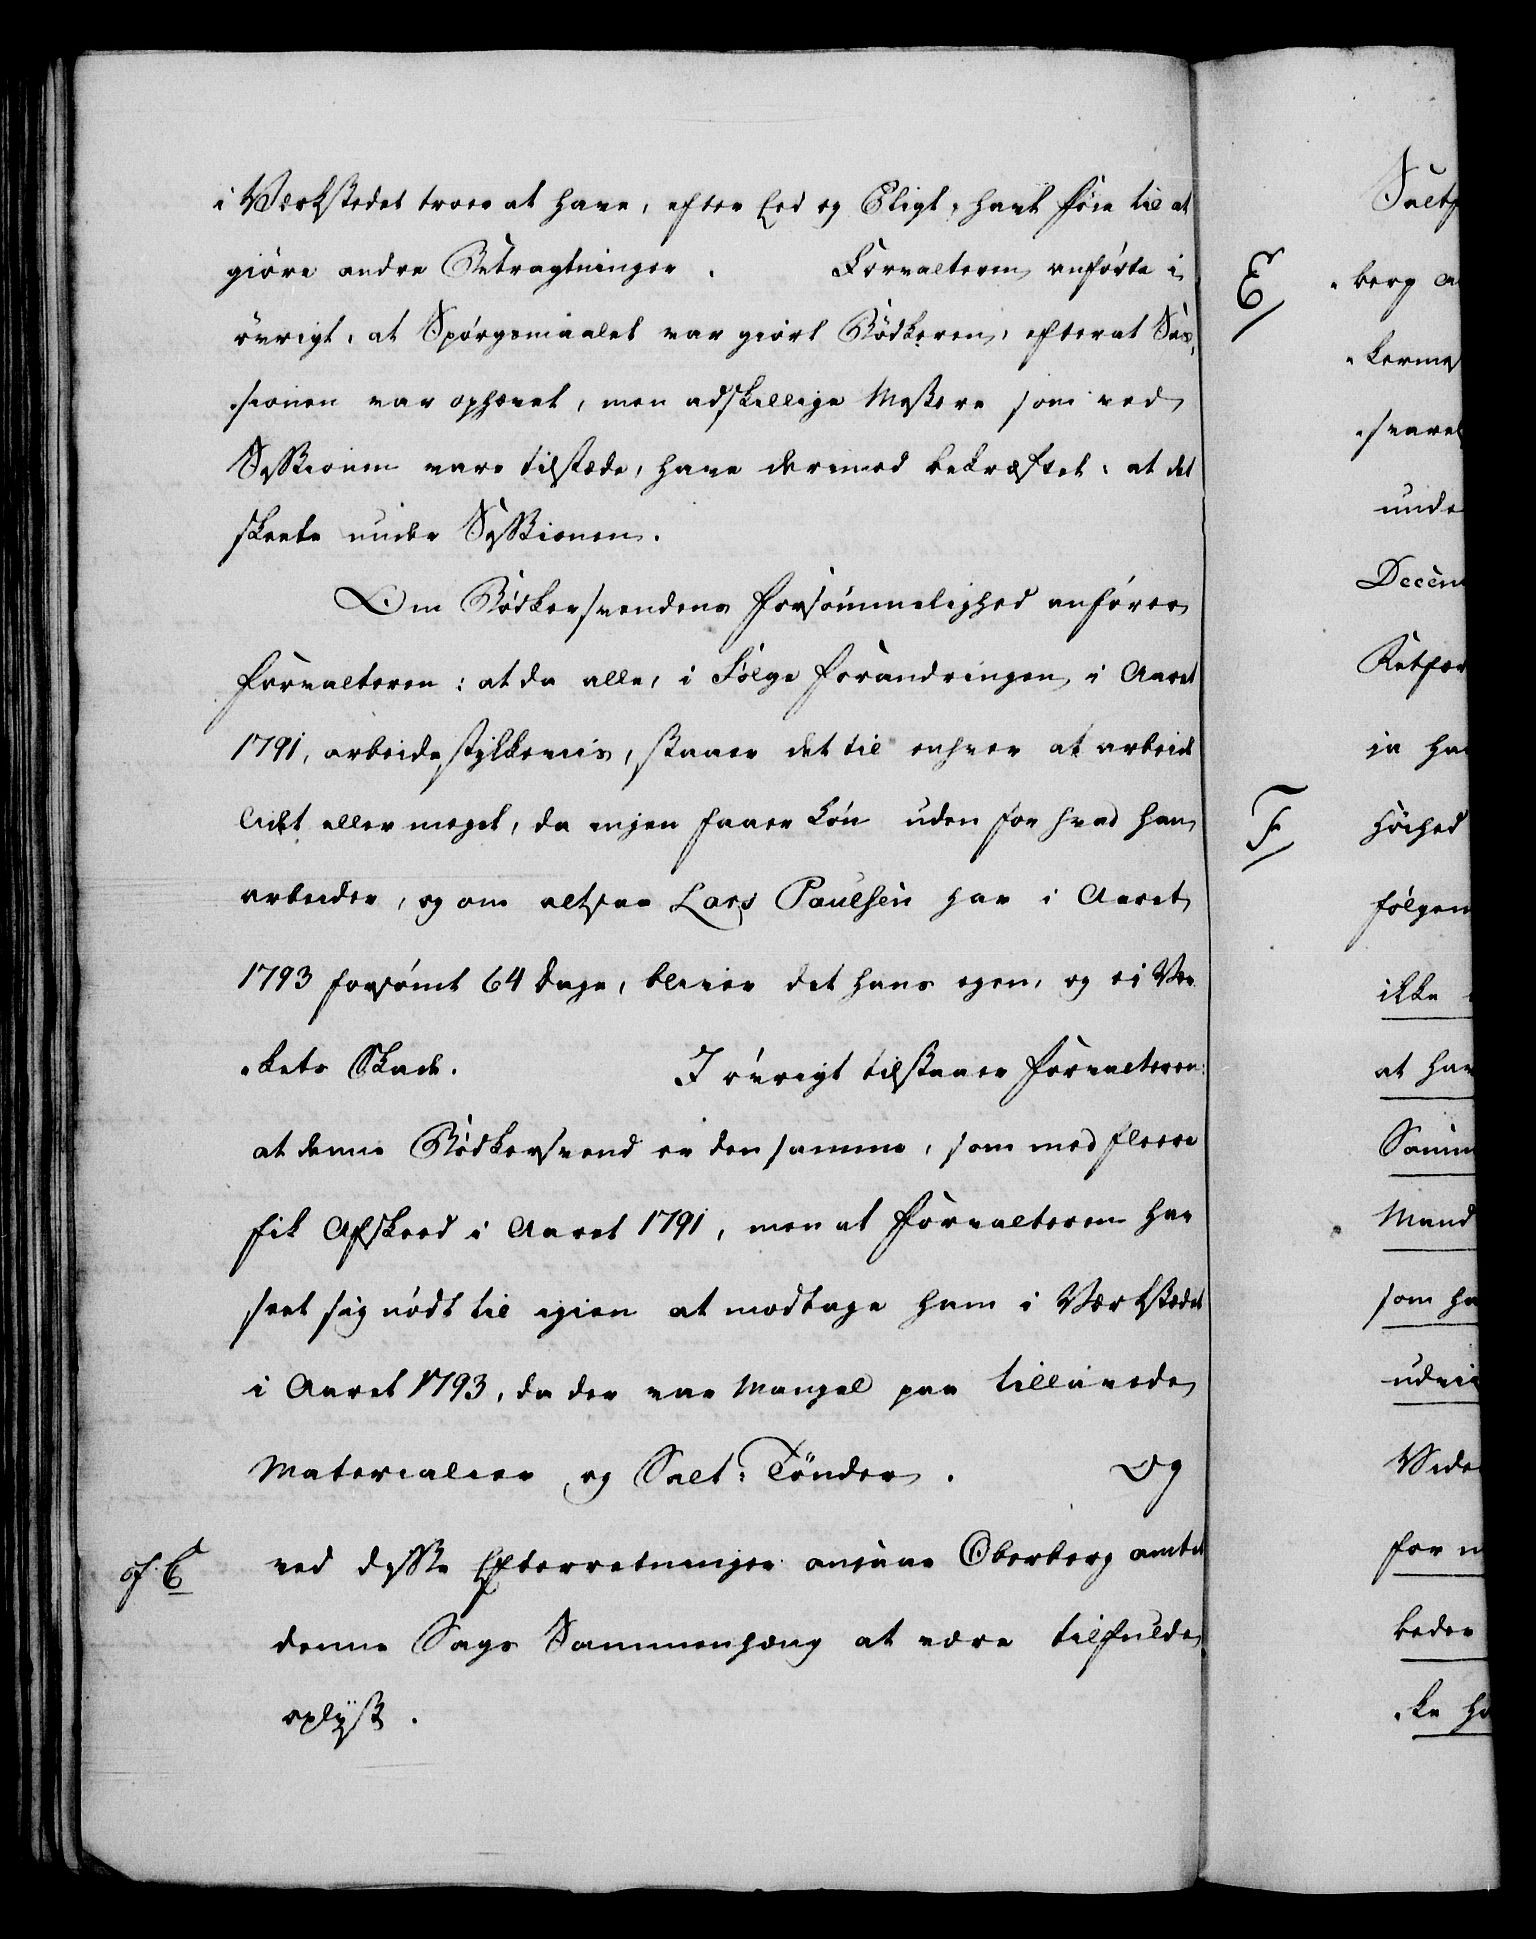 i Værkstedet troer at have, efter Eed og Pligt, havt Föie til at
giöre andre Betragtninger. Forvalteren anförte i
övrigt, at Spörgsmaalet var giört Bödkeren, efterat Ses„
„sionen var ophævet, men adskillige Mestere som ved
Sessionen vare tilstæde, have derimod bekræftet: at det
skeete under Sessionen.
Om Bödkersvendens Forsömmelighed anförer
Forvalteren: at da alle, i Fölge Forandringen i Aaret
1791, arbeide stykkeviis, staaer det til enhver at arbeide
lidt eller meget, da ingen faaer Lön uden for hvad han
arbeider, og om altsaa Lars Paulsen har i Aaret
1793 forsömt 64 Dage, bliver det hans egen, og ei Vær
„kets Skade. I övrigt tilstaaer Forvalteren:
at denne Bödkersvend er den samme, som med fleere
fik Afskeed i Aaret 1791, men at Forvalteren har
seet sig nödt til igien at modtage ham i Værkstædet
i Aaret 1793, da der var Mangel paa tillavede
Materialier og Salt-Tönder. Og
cf. E
ved disse Efterretninger ansaae Oberberg amtet
denne Sags Sammenhæng at være tilfulde
oplyst.
E
F
„berg
unde
Decem
höihed
fölgen
ikke
at hav
Mand
som ha
for
beder